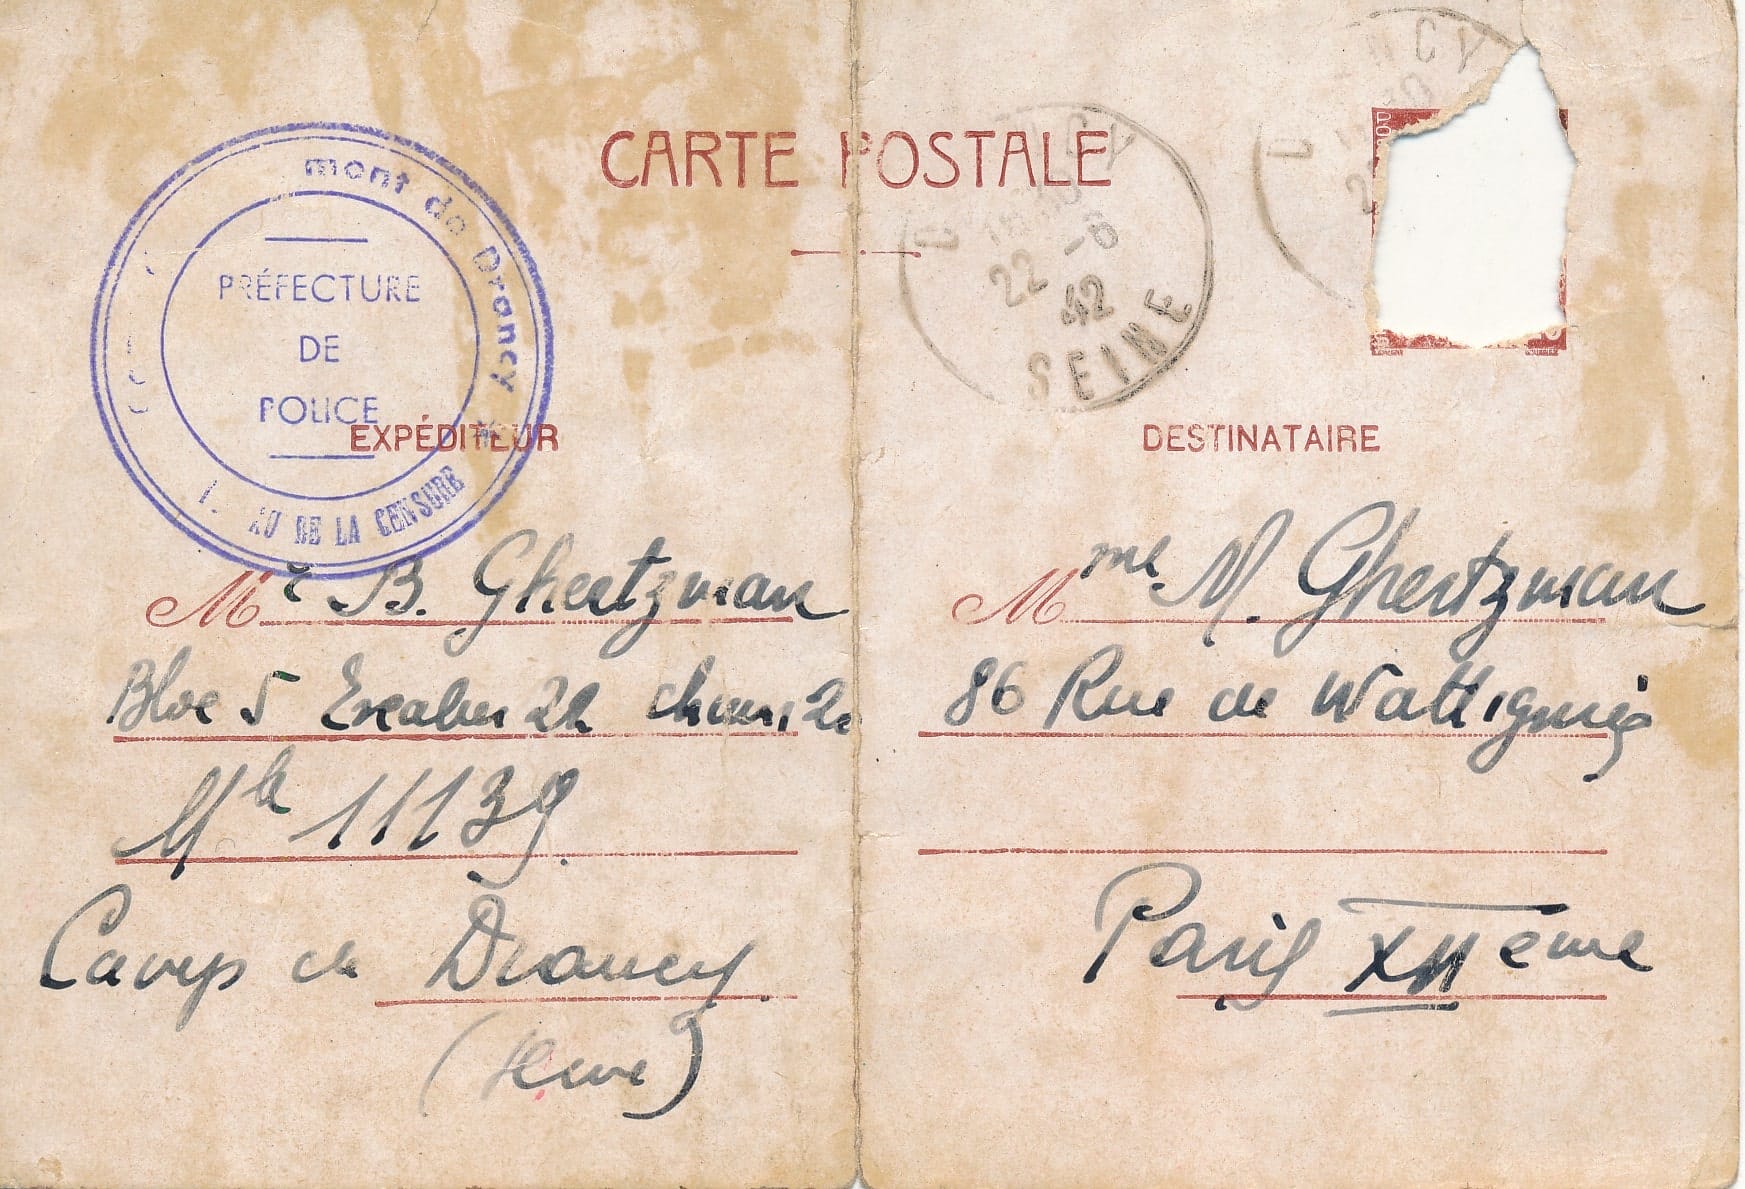 CARTE POSTALE
mont de Drancy
PRÉFECTURE
DE
POLICE
AU DE LA CENSURE
22 -6
42
SEINE
NCY
EXPÉDITEUR
Mr B. Ghertzman
Bloc 5 Escalier 22 cham
Mle 11139
Camp de Drancy
(Seine)
DESTINATAIRE
Mme M. Ghertzman
86 Rue de Wattignies
Paris XIIeme